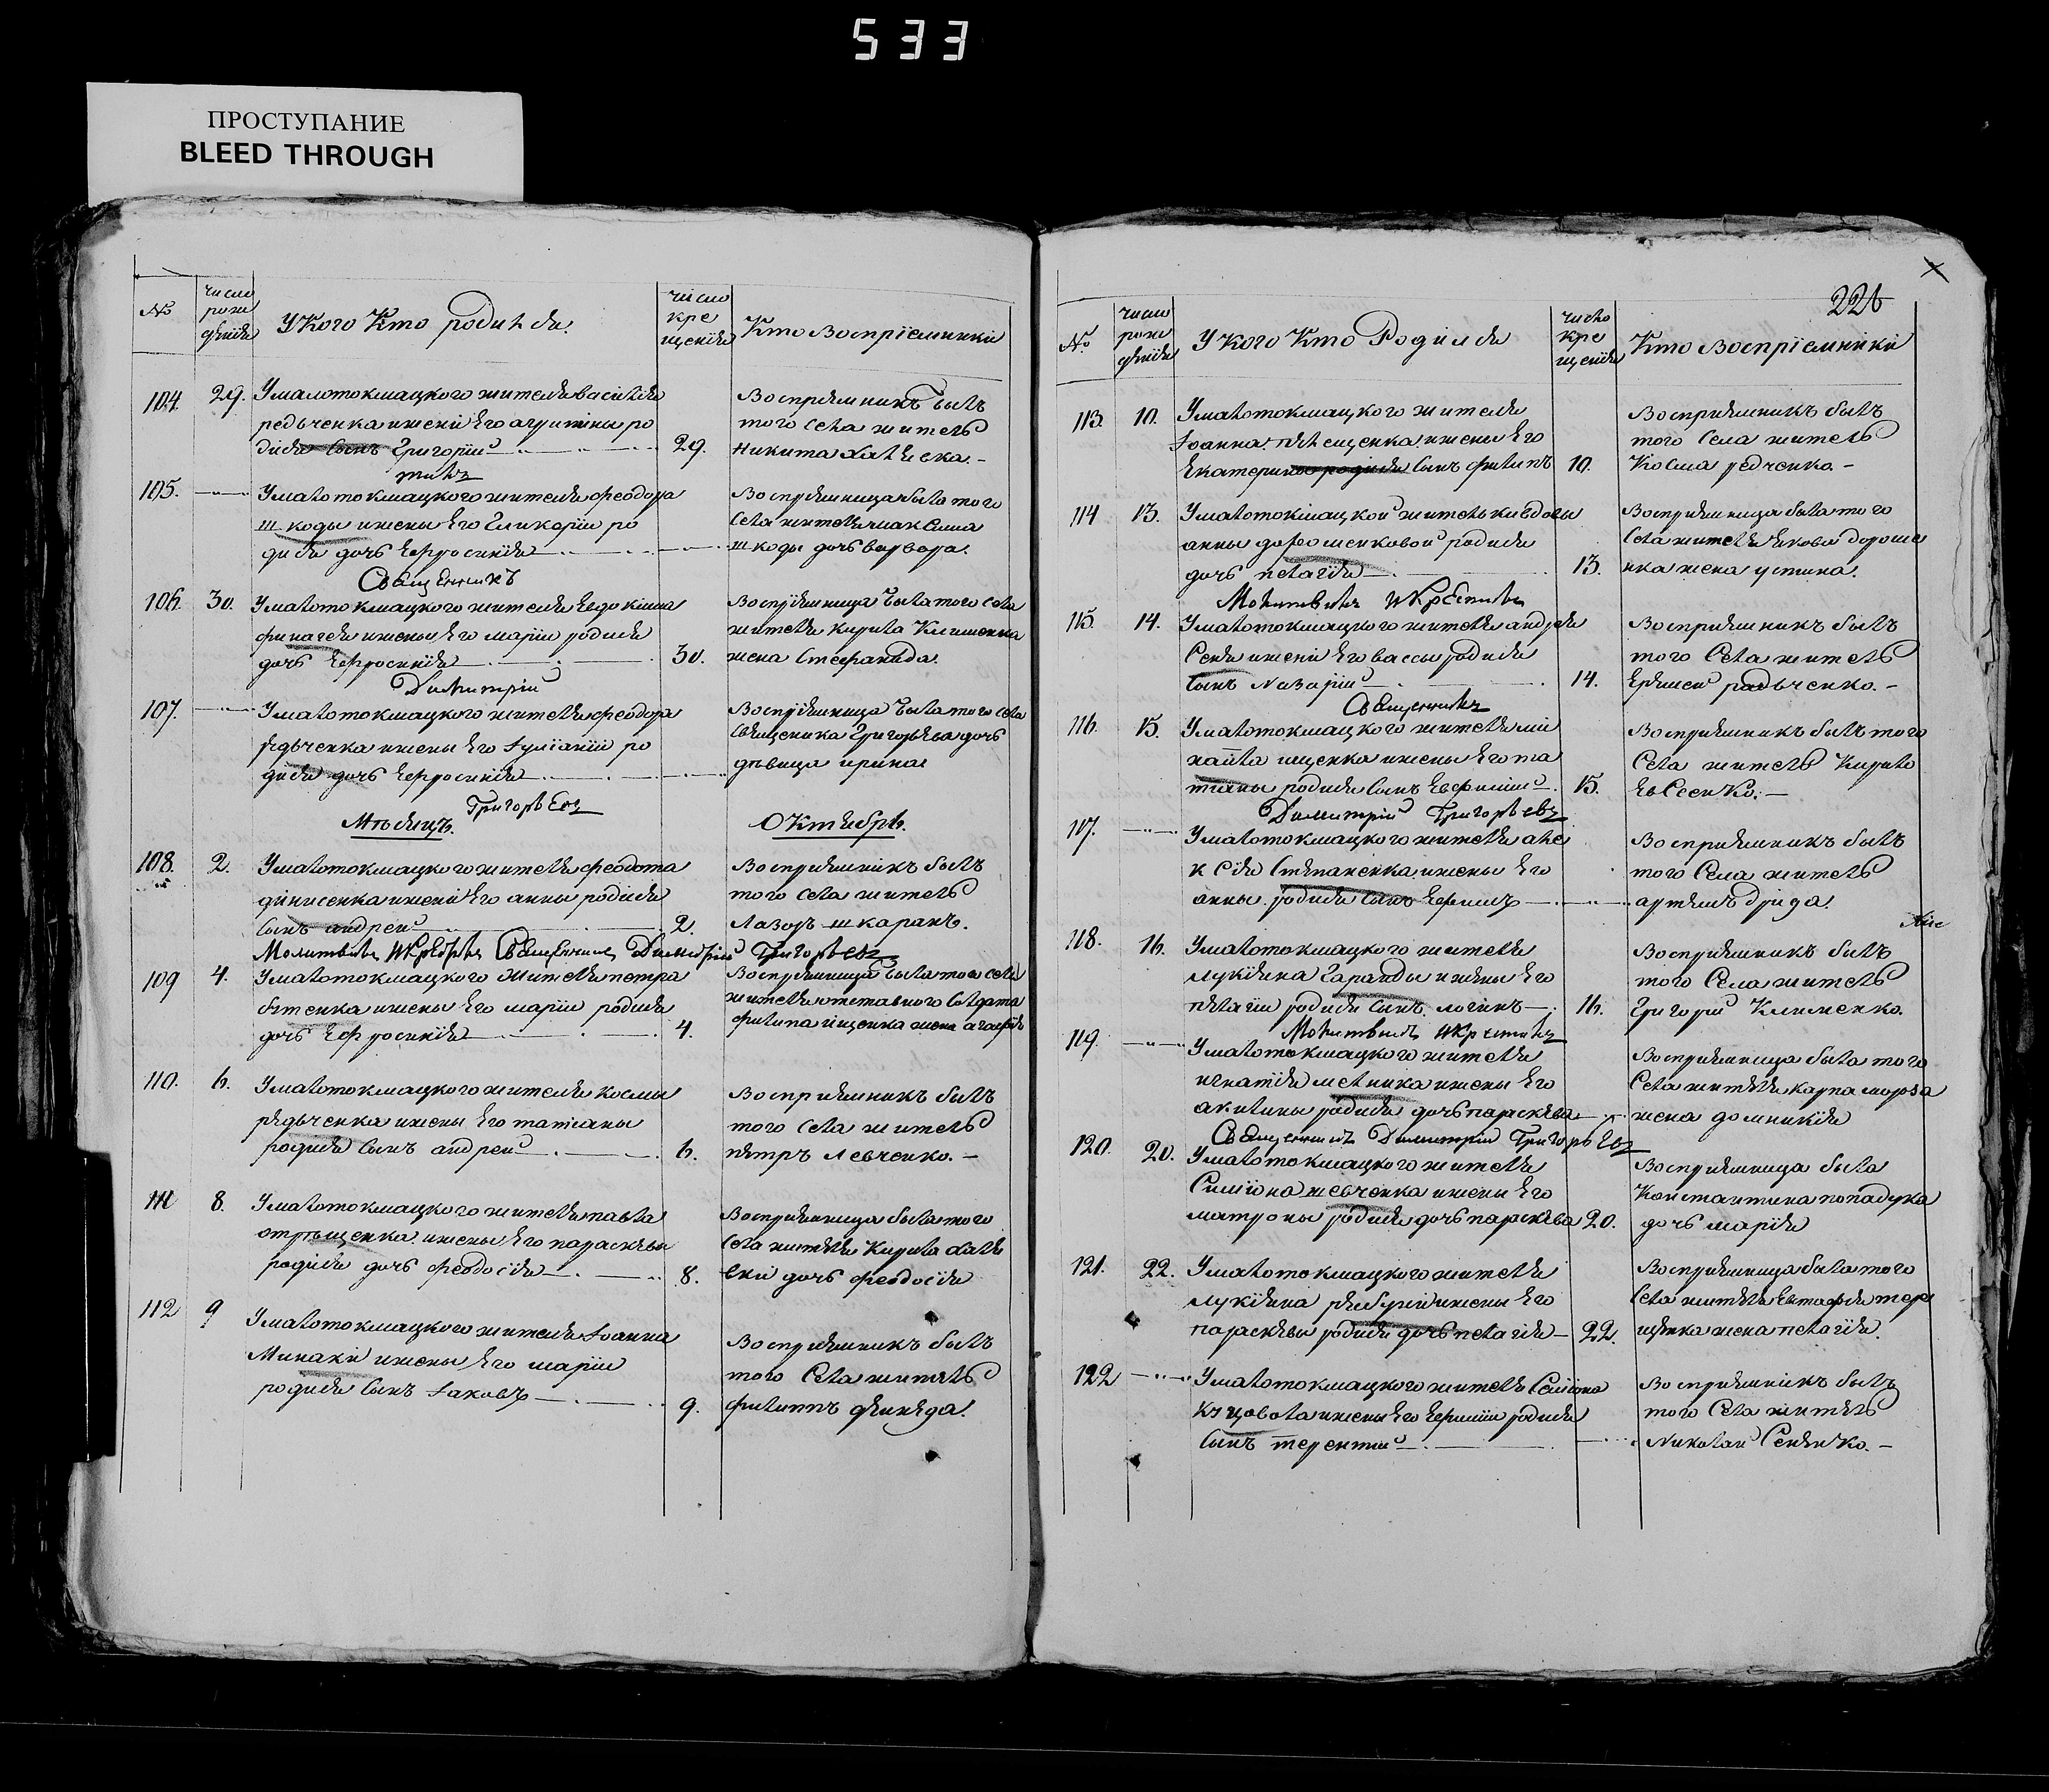 533
ПРОСТУПАНИЕ
BLEED THROUGH
№ число рожденія У кого кто родился. число крещенія Кто Воспріемники
104. 29. Умалотокмацкого жителя василія
редьченка ижени Его агрипины ро
дился сынъ Григорій 29.
Восприемникъ былъ
того села житель
Никита
105. Умалотокмацкого жителя феодора
шкоды ижены Его Гликеріи ро
дися дочь Ефросинія
Восприемница была того
села жителя максима
шкоды дочь варвара.
Священникъ
106. 30. Умалотокмацкого жителя Евдокима
ижены Его маріи родися
дочь Ефросинія 30.
Восприемница была того села
жителя кирила Клименка
жена Стефанида.
Димитрій
107. Умалотокмацкого жителя феодора
редьченка ижены Его Іуліаніи ро
дися дочь Ефросинія
Восприемница была того села
священика Григорьева дочь
дѣвица ирина
Григорьевъ
Мѣсяцъ. Октябрь.
108. 2. Умалотокмацкого жителя феодота
динисенка ижени Его анны родися
сынъ андрей 2.
Восприемникъ былъ
того села житель
Лазоръ шкаранъ.
Молитвилъ икрестилъ Священникъ Димитрій Григорьевъ
109 4. Умалотокмацкого жителя петра
ижены Его маріи родися
дочь Ефросинія 4.
Восприемница была того села
жителя отставного солдата
филипа іщенка жена агафія
110. 6. Умалотокмацкого жителя космы
редьченка ижены Его татіаны
родися сынъ андрей 6.
Восприемникъ былъ
того села житель
петръ Левченко.
111 8. Умалотокмацкого жителя павла
отрищенка ижены Его параскевы
родися дочь феодосія 8.
Восприемница была того
села жителя Кирила
дочь феодосія
112 9 Умалотокмацкого жителя Іоанна
Минаки ижены Его маріи
родися сынъ Іаковъ 9.
Восприемникъ былъ
того села житель
филиппъ
226
№ число рожденія У кого Кто Родился число крещенія Кто Воспріемники
113. 10. Умалотокмацкого жителя
Іоанна ижены Его
Екатерины родися сынъ филипъ 10.
Восприемникъ былъ
того села житель
Косма редченко.
114 13. Умалотокмацкой жительки вдовы
анны дорошенковой родися
дочь пелагія 13.
Восприемница была того
села жителя якова дороше
нка жена устина.
Молитвилъ икрестилъ
115 14. Умалотокмацкого жителя андрея
Сені ижени Его вассы родися
сынъ Назарій 14.
Восприемникъ былъ
того села житель
радьченко.
Священникъ
116. 15. Умалотокмацкого жителя ми
хаила ищенка ижены Его та
тианы родися сынъ Евфимій 15.
Восприемникъ былъ того
села житель Кирило
Евсеенко.
Димитрій Григорьевъ
107. Умалотокмацкого жителя але
ксѣя степаненка ижены Его
анны родися сынъ
Восприемникъ былъ
того села житель
артемъ дрига.
118. 16. Умалотокмацкого жителя
лукіяна ижены Его
пелагіи родися сынъ логинъ 16.
Восприемникъ былъ
того села житель
Григорій Клименко.
Молитвилъ икрестилъ
119. Умалотокмацкого жителя
игнатія мелника ижены Его
акилины родися дочь параскева
Восприемница была того
села жителя карпа мороза
жена домникія
Священникъ Димитрій Григорьевъ
120. 20. Умалотокмацкого жителя
Симіона шевченка ижены Его
матроны родися дочь параскева 20.
Восприемница была
Константина попадука
дочь марія
121. 22. Умалотокмацкого жителя
лукіяна рябухи ижены Его
параскевы родися дочь пелагія 22.
Восприемница была того
села жителя Евстафія тере
щенка жена пелагія.
122 Умалотокмацкого жителя Семіона
куцовола ижены Его родися
сынъ терентій
Восприемникъ былъ
того села житель
Николай Сененко.